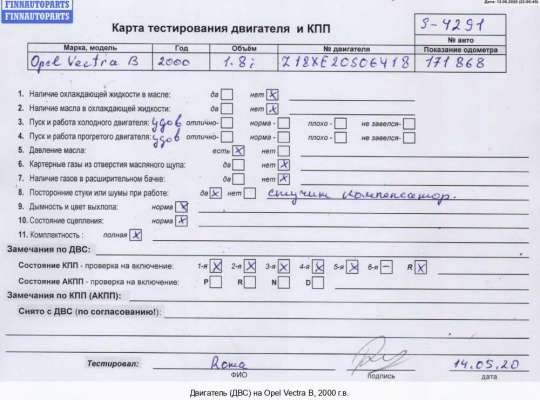 FINNAUTOPARTS
FINNAUTOPARTS
Карта тестирования двигателя и КПП
S-4291
№ авто
Марка, модель Год Объём № двигателя Показание одометра
Opel Vectra B 2000 1.8i Z18XE20S06418 171868
1. Наличие охлаждающей жидкости в масле: да нет X
2. Наличие масла в охлаждающей жидкости: да нет X
3. Пуск и работа холодного двигателя: удов отлично- норма - плохо - не завелся-
4. Пуск и работа прогретого двигателя: удов отлично- норма - плохо - не завелся-
5. Давление масла: есть X нет
6. Картерные газы из отверстия масляного щупа: да нет
7. Наличие газов в расширительном бачке: да нет
8. Посторонние стуки или шумы при работе: да X нет стучит компенсатор.
9. Дымность и цвет выхлопа: норма X
10. Состояние сцепления: норма X
11. Комплектность : полная X
Замечания по ДВС:
Состояние КПП - проверка на включение: 1-я X 2-я X 3-я X 4-я X 5-я X 6-я – R X
Состояние АКПП - проверка на включение: P R N D
Замечания по КПП (АКПП):
Снято с ДВС (по согласованию!):
Тестировал: Рома 14.05.20
ФИО подпись дата
Двигатель (ДВС) на Opel Vectra B, 2000 г.в.